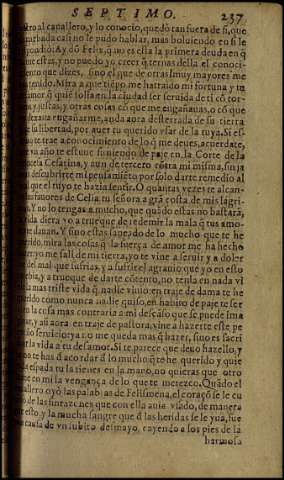 SEPTIMO. 237
stro al cauallero, y lo conocio, quedò tan fuera de si, que
turbada casi no le pudo hablar, mas boluiendo en si le
respondiò: Ay dõ Felix, q̃ no es esta la primera deuda en q̃
me estas, y no puedo yo creer q̃ ternas della el conoci-
miento que dizes, sino el que de otras muy mayores me
has tenido. Mira a que tiẽpo me ha traido mi fortuna y tu
amor, q̃ quiẽ solia en la ciudad ser seruida de ti cõ tor-
neos y justas, y otras cosas cõ que me engañauas, o cõ que
dexaua engañarme, anda aora desterrada de su tierra
y de su libertad, por auer tu querido vsar de la tuya. Si es-
to te trae a conocimiento de lo q̃ me deues, acuerdate,
vn año te estuue siruiendo de paje en la Corte de la
Princesa Cesarina, y aun de tercero cõtra mi misma, sin ja
mas descubrirte mi pensamiẽto por solo darte remedio al
mal que el tuyo te hazia sentir. O quantas vezes te alcan-
cè fauores de Celia tu señora a grã costa de mis lagri-
mas. Y no lo tengas a mucho, que quãdo estas no bastarã,
la vida diera yo a trueque de redemir la mala q̃ tus amo-
res te dauan. Y sino estas saneado de lo mucho que te he
querido, mira las cosas q̃ la fuerça de amor me ha hecho
hazer. yo me salì de mi tierra, yo te vine a seruir y a doler
del mal que sufrias, y a sufrir el agrauio que yo en esto
recebia, y a trueque de darte cõtento, no tenia en nada vi
uir la mas triste vida q̃ nadie viuio. en traje de dama te he
querido como nunca nadie quiso, en habito de paje te ser
ui en la cosa mas contraria a mi descãso que se puede ima
ginar, y aũ aora en traje de pastora, vine a hazerte este pe
queño seruicio: ya no me queda mas q̃ hazer, sino es sacri
ficar la vida a tu desamor. Si te parece que deuo hazello, y
que no te has d̃ acordar d̃ lo mucho q̃ te he querido y quie
ro, la espada tu la tienes en la mano, no quieras que otro
tome en mi la vengança de lo que te merezco. Quãdo el
cauallero oyò las palabras de Felismena, el coraçõ se le cu
brio de las sinrazones que con ella auia vsado, de manera
que esto y la mucha sangre que d̃ las heridas se le yua, fue
causa de vn subito desmayo, cayendo a los pies de la
hermosa